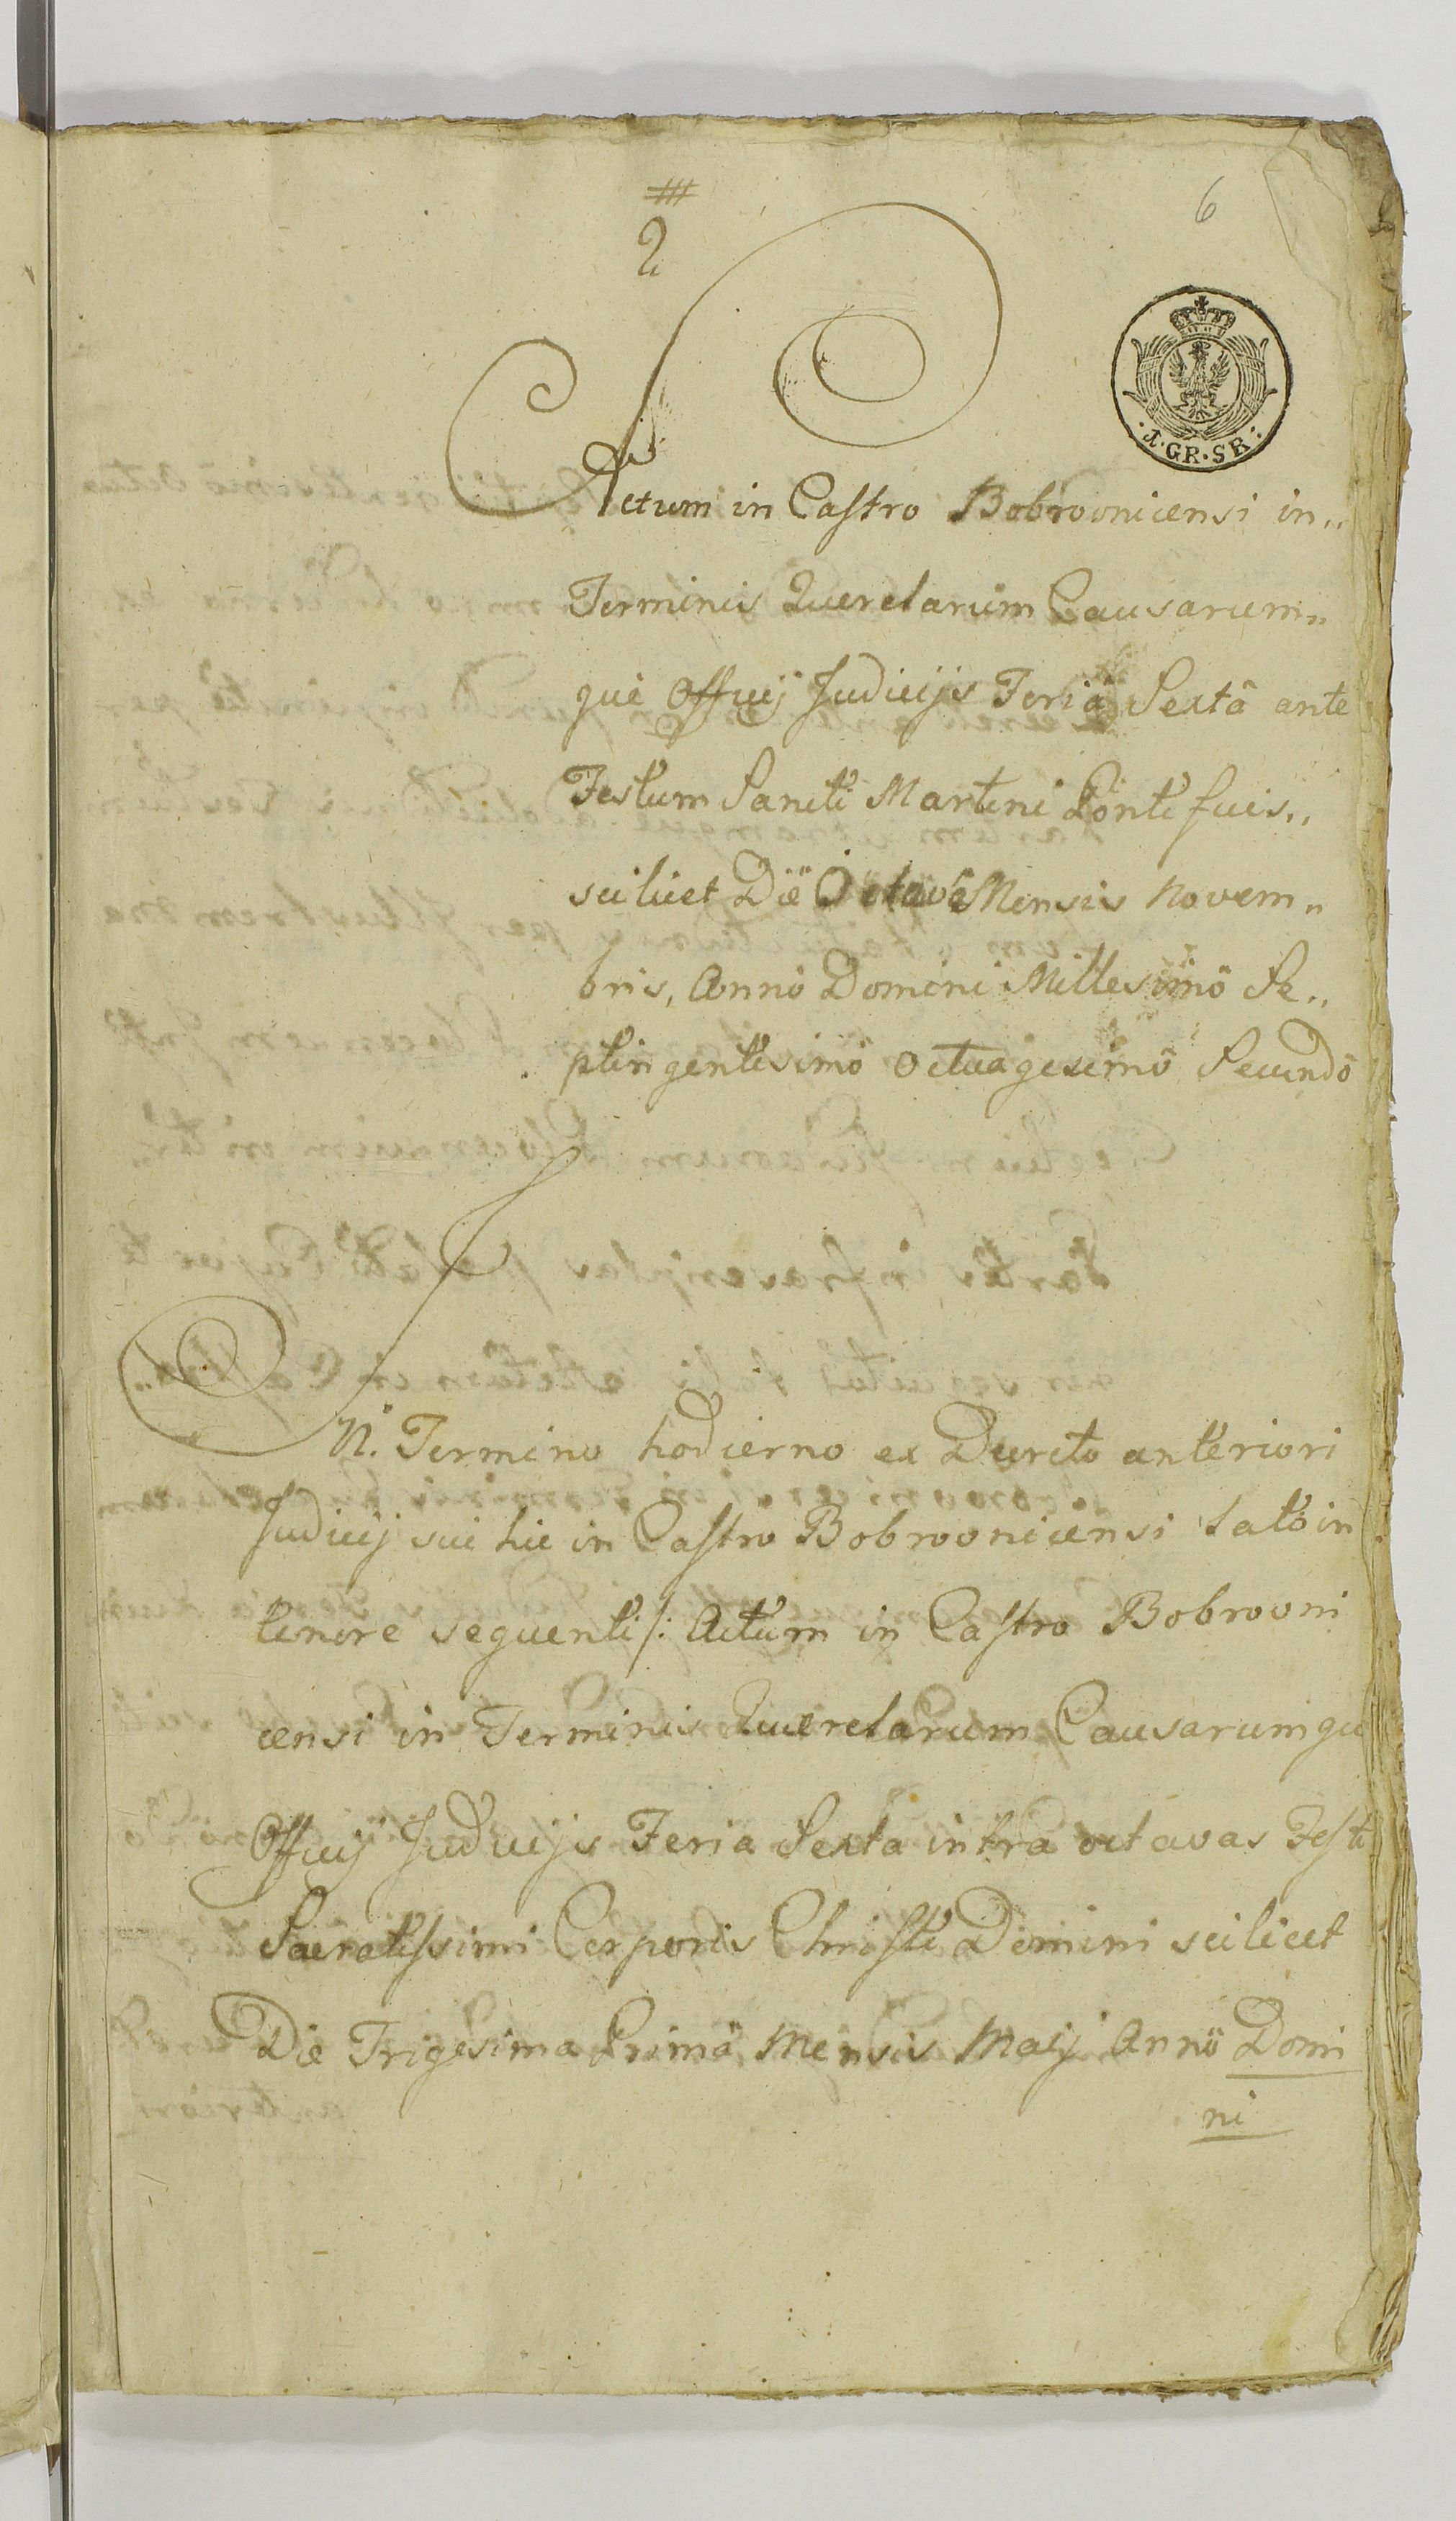 6
2
Actum in Castro Bobrovnicensi in„
Terminis Querelarum Causarum„
què Officij Judicijs Feriâ Sextâ ante
Festum Sancti Martini Pontificis„
scilicet Die Octavâ Mensis Novem„
bris, Annô Domini Millesimô Se„
ptingentesimô Octuagesimô Secundô
IN. Termino hodierno ex Decreto anteriori
Judicij sui hic in Castro Bobrovnicensi latô in
tenore sequenti /: Actum in Castro Bobrovni
censi in Terminis Querelarum Causarumqu
Officij Judicijs Feria Sexta intra octavas Festi
Sacratissimi Corporis Christi Domini scilicet
Die Trigesima Primâ Mensis Maij Annô Domi
ni
GR. SR.